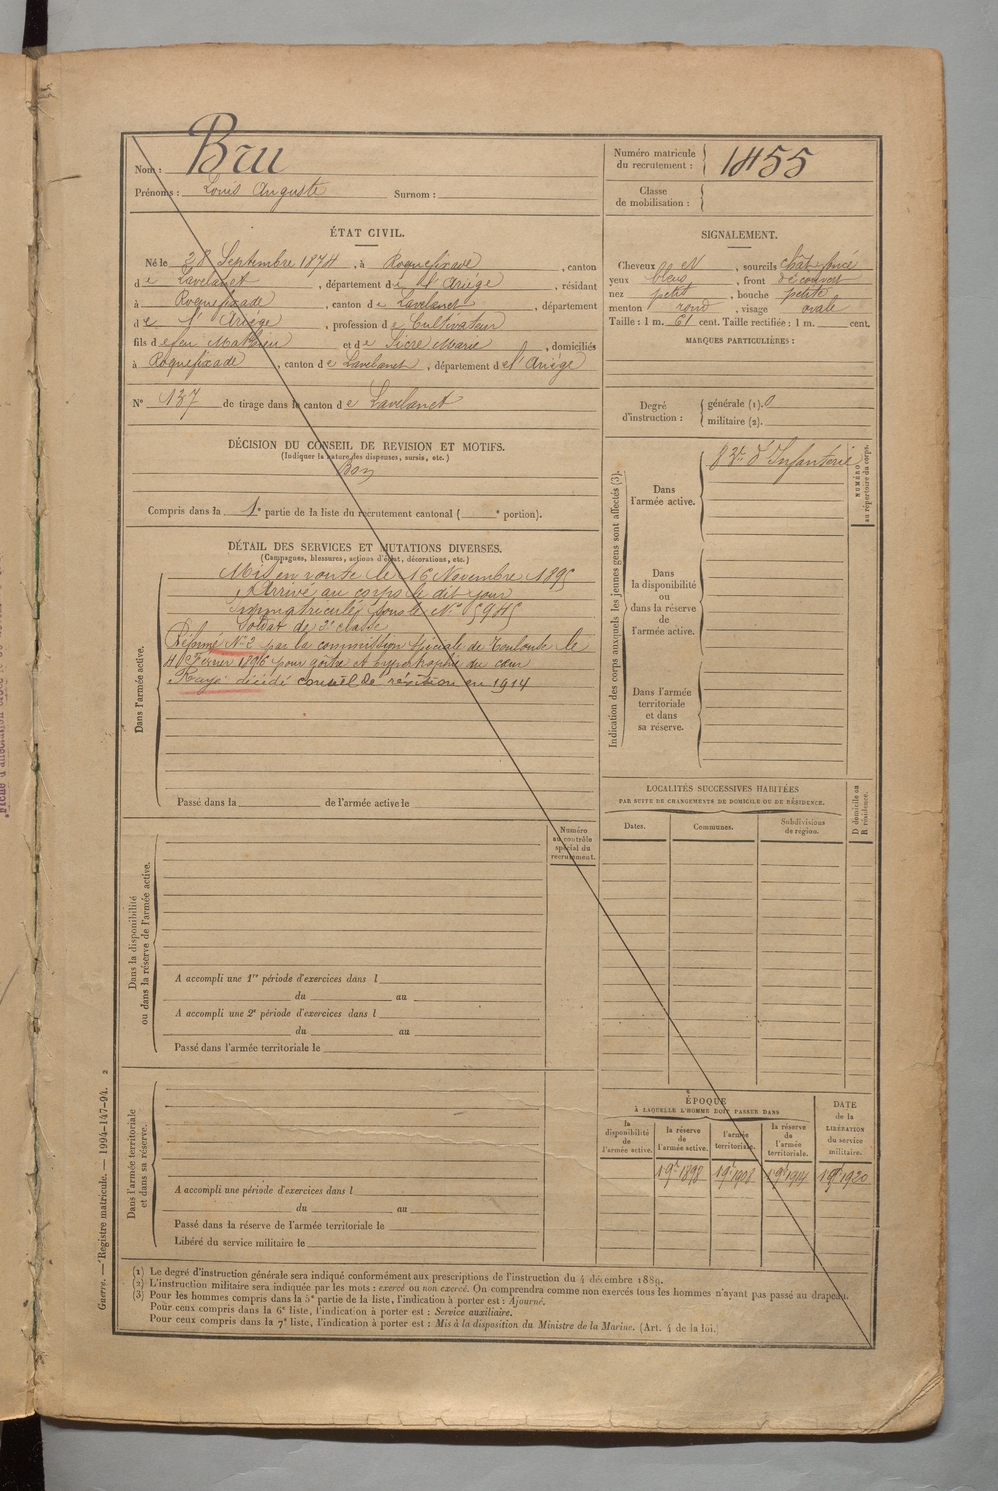 Nom : Bru
Prénoms : Louis Auguste Surnom :
Numéro matricule
du recrutement : 1455
Classe
de mobilisation :
ÉTAT CIVIL.
Né le 28 Septembre 1874, à Roquefixade, canton
de Lavelanet, département de l'Ariège, résidant
à Roquefixade, canton de Lavelanet, département
de l'Ariège, profession de Cultivateur
fils de feu Mathieu et de Sicre Marie, domiciliés
à Roquefixade, canton de Lavelanet, département de l'Ariège
N° 137 de tirage dans le canton de Lavelanet
SIGNALEMENT.
Cheveux et, sourcils chât foncé
yeux bleus, front découvert
nez petit, bouche petite
menton rond, visage ovale
Taille : 1 m. 61 cent. Taille rectifiée : 1 m. cent.
MARQUES PARTICULIÈRES :
Degré
d'instruction :
générale (1). 0
militaire (2).
DÉCISION DU CONSEIL DE REVISION ET MOTIFS.
(Indiquer la nature des dispenses, sursis, etc.)
Bon
Compris dans la 1e partie de la liste du recrutement cantonal ( e portion).
DÉTAIL DES SERVICES ET MUTATIONS DIVERSES.
(Campagnes, blessures, actions d'éclat, décorations, etc.)
Dans l'armée active.
Mis en route le 16 Novembre 1895
Arrivé au corps le dit jour
Immatriculé sous le N° 5945
Soldat de 2e classe
Réformé N° 2 par la commission spéciale de Toulouse le
Février 1896 pour goître et hypertrophie du cœur
Rayé décédé conseil de révision en 1914
Passé dans la de l'armée active le
Indication des corps auxquels les jeunes gens sont affectés (3).
Dans
l'armée active.
d'Infanterie
NUMÉRO
au répertoire du corps.
Dans
la disponibilité
ou
dans la réserve
de
l'armée active.
Dans l'armée
territoriale
et dans
sa réserve.
LOCALITÉS SUCCESSIVES HABITÉES
PAR SUITE DE CHANGEMENTS DE DOMICILE OU DE RÉSIDENCE.
Dates.
Communes.
Subdivisions
de région.
D domicile ou
R résidence.
Dans la disponibilité
ou dans la réserve de l'armée active.
Numéro
au contrôle
spécial du
recrutement.
A accompli une 1re période d'exercices dans l
du au
A accompli une 2e période d'exercices dans l
du au
Passé dans l'armée territoriale le
Dans l'armée territoriale
et dans sa réserve.
A accompli une période d'exercices dans l
du au
Passé dans la réserve de l'armée territoriale le
Libéré du service militaire le
ÉPOQUE
À LAQUELLE L'HOMME DOIT PASSER DANS
la
disponibilité
de
l'armée active.
la réserve
de
l'armée active.
l'armée
territoriale.
la réserve
de
l'armée
territoriale.
DATE
de la
LIBÉRATION
du service
militaire.
1 9bre 1898 1 9bre 1908 1 9bre 1914 1 9bre 1920
(1) Le degré d'instruction générale sera indiqué conformément aux prescriptions de l'instruction du 4 décembre 1889.
(2) L'instruction militaire sera indiquée par les mots : exercé ou non exercé. On comprendra comme non exercés tous les hommes n'ayant pas passé au drapeau.
(3) Pour les hommes compris dans la 5e partie de la liste, l'indication à porter est : Ajourné.
Pour ceux compris dans la 6e liste, l'indication à porter est : Service auxiliaire.
Pour ceux compris dans la 7e liste, l'indication à porter est : Mis à la disposition du Ministre de la Marine. (Art. 4 de la loi.)
Guerre. — Registre matricule. — 1994-147-94. 2